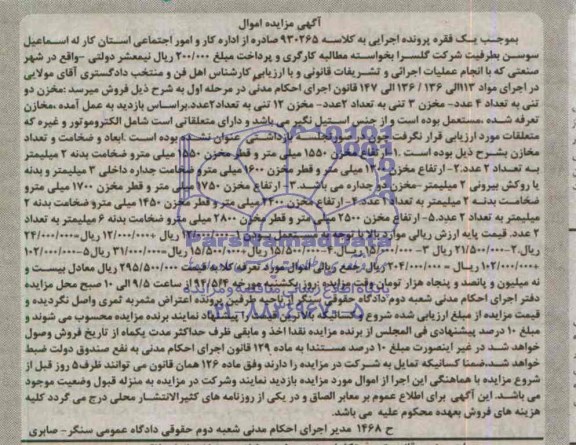 آگهی مزایده اموال
بموجب یک فقره پرونده اجرایی به کلاسه ۹۳۰۲۶۵ صادره از اداره کار و امور اجتماعی استان کار له اسماعیل
سوسن بطرفیت شرکت گلسرا بخواسته مطالبه کارگری و پرداخت مبلغ ۲۰۰/۰۰۰ ریال نیمعشر دولتی -واقع در شهر
صنعتی که با انجام عملیات اجرائی و تشریفات قانونی و با ارزیابی کارشناس اهل فن و منتخب دادگستری آقای مولایی
در اجرای مواد ۱۱۳الی ۱۳۶ / ۱۳۶ الی ۱۴۷ قانون اجرای احکام مدنی در مرحله اول به شرح ذیل فروش میرسد :مخزن دو
تنی به تعداد ۴ عدد- مخزن ۳ تنی به تعداد ۲عدد- مخزن ۱۲ تنی به تعداد۲عدد.براساس بازدید به عمل آمده ،مخازن
تعرفه شده ،مستعمل بوده است و از جنس استیل نگیر می باشد و دارای متعلقاتی است شامل الکتروموتور و غیره که
متعلقات مورد ارزیابی قرار نگرفت چون در بازداشتی عنوان نشده بوده است .ابعاد و ضخامت و تعداد
مخازن بشرح ذیل بوده است .۱- ارتفاع مخزن ۱۵۵۰ میلی متر و قطر مخزن ۱۵۵۰ میلی مترو ضخامت بدنه ۲ میلیمتر
به تعداد ۲ عدد.۲- ارتفاع مخزن میلی متر و قطر مخزن ۱۶۰۰ میلی مترو ضخامت جداره داخلی ۳ میلیمتر و بدنه
یا روکش بیرونی ۲ میلیمتر -مخزن دو جداره می باشد.۳- ارتفاع مخزن ۱۷۵۰ میلی متر و قطر مخزن ۱۷۰۰ میلی مترو
ضخامت بدنه ۲ میلیمتر به تعداد ۲ عدد.۴- ارتفاع مخزن میلی متر و قطر مخزن ۱۴۵۰ میلی مترو ضخامت بدنه ۲
میلیمتر به تعداد ۲ عدد.۵- ارتفاع مخزن ۲۵۰۰ میلی متر و قطر مخزن ۲۸۰۰ میلی مترو ضخامت بدنه ۶ میلیمتر به تعداد
۲ عدد. قیمت پایه ارزش ریالی موارد بالا با توجه به مستعمل بودن ۱- ۱۲/۰۰۰/۰۰۰ ریال ۱۲/۰۰۰/۰۰۰ ریال =۲۴/۰۰۰/۰۰۰
ریال.۲- ۲۱/۵۰۰/۰۰۰ ریال ۳- ریال.۴- ۱۵/۵۰۰/۰۰۰ ریال +۱۵/۵۰۰/۰۰۰ ریال=۳۱/۰۰۰/۰۰۰ ریال.۵-۱۰۲/۰۰۰/۰۰۰
۱۰۲/۰۰۰/۰۰۰ ریال =۲۰۴/۰۰۰/۰۰۰ ریال جمع ریالی اموال مورد تعرفه کلا به قیمت ۲۹۵/۵۰۰/۰۰۰ ریال معادل بیست و
نه میلیون و پانصد و پنجاه هزار تومان وقت مزایده روز یکشنبه مورخه ۹۴/۵/۴ از ساعت ۹/۵ الی ۱۰ صبح محل مزایده
دفتر اجرای احکام مدنی شعبه دوم دادگاه حقوقی سنگر از ناحیه طرفین پرونده اعتراض مثمربه ثمری واصل نگردیده و
قیمت مزایده از مبلغ ارزیابی شده شروع و کسانیکه بالاترین قیمت را پیشنهاد نمایند برنده مزایده محسوب می شوند و
مبلغ ۱۰ درصد پیشنهادی فی المجلس از برنده مزایده نقدا اخذ و مابقی ظرف حداکثر مدت یکماه از تاریخ فروش وصول
خواهد شد در غیر اینصورت مبلغ ۱۰ درصد مستندا به ماده ۱۲۹ قانون اجرای احکام مدنی به نفع صندوق دولت ضبط
خواهد شد.ضمنا کسانیکه تمایل به شرکت در مزایده را دارند وفق ماده ۱۲۶ همان قانون می توانند ظرف ۵ روز قبل از
شروع مزایده با هماهنگی این اجرا از اموال مورد مزایده بازدید نمایند وشرکت در مزایده به منزله قبول وضعیت موجود
می باشد. این آگهی برای اطلاع عموم بر معابر الصاق و در یکی از روزنامه های کثیرالانتشار محلی درج می گردد کلیه
هزینه های فروش بعهده محکوم علیه می باشد.
ح ۱۴۶۸ مدیر اجرای احکام مدنی شعبه دوم حقوقی دادگاه عمومی سنگر- صابری
ParsNamadData